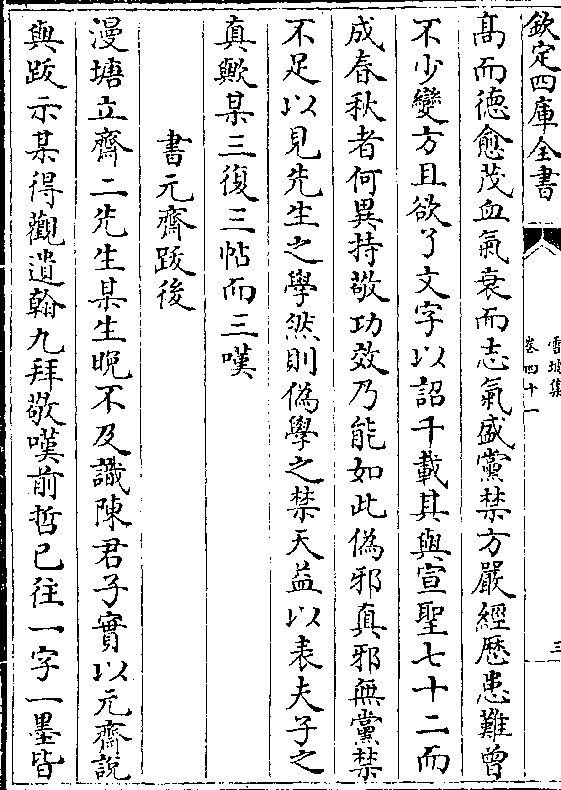 欽定四庫全書
雪坡集
卷四十一
三
髙而徳愈茂血氣衰而志氣盛黨禁方嚴經歴患難曾
不少變方且欲了文字以詔千載其與宣聖七十二而
成春秋者何異持敬功效乃能如此偽邪真邪無黨禁
不足以見先生之學然則偽學之禁天益以表夫子之
真歟某三復三帖而三嘆
書元齊跋後
漫塘立齊二先生某生晚不及識陳君子實以元齊說
與跋示某得觀遺翰九拜敬嘆前哲已往一字一墨皆